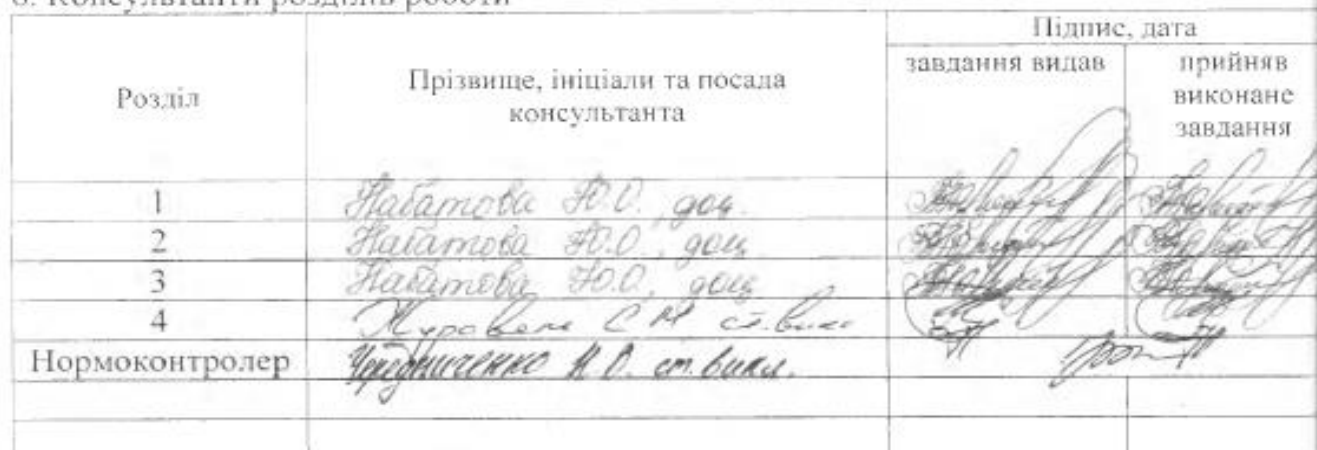 6. Консультанти розділів роботи
Розділ
Прізвище, ініціали та посада
консультанта
Підпис, дата
завдання видав
прийняв
виконане
завдання
1 Набатова Ю.О., доц.
2 Набатова Ю.О, доц
3 Набатова Ю.О, доц
4 С М ст. викл
Нормоконтролер Чередниченко Н.О. ст. викл.